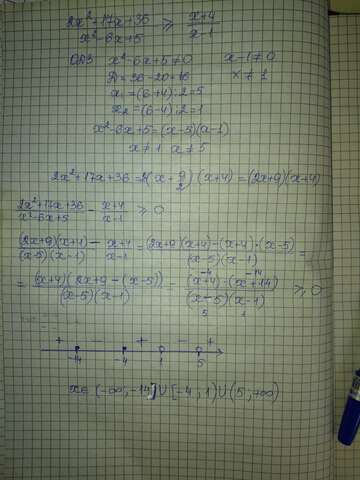 (2x²+17x+36)/(x²-6x+5) ≥ (x+4)/(x-1)
ОДЗ x²-6x+5≠0 x-1≠0
D=36-20=16 x≠1
x₁=(6+4):2=5
x₂=(6-4):2=1
x²-6x+5=(x-5)(x-1)
x≠1 x≠5
2x²+17x+36=2(x+9/2)(x+4)=(2x+9)(x+4)
(2x²+17x+36)/(x²-6x+5) - (x+4)/(x-1) ≥ 0
((2x+9)(x+4))/((x-5)(x-1)) - (x+4)/(x-1) = ((2x+9)(x+4)-(x+4)·(x-5))/((x-5)(x-1)) =
= ((x+4)(2x+9-(x-5)))/((x-5)(x-1)) = ((x+4)·(x+14))/((x-5)(x-1)) ≥ 0
-4 -14
5 1
+ - - - +
-14 -4 1 5
x∈(-∞,-14]∪[-4,1)∪(5,+∞)